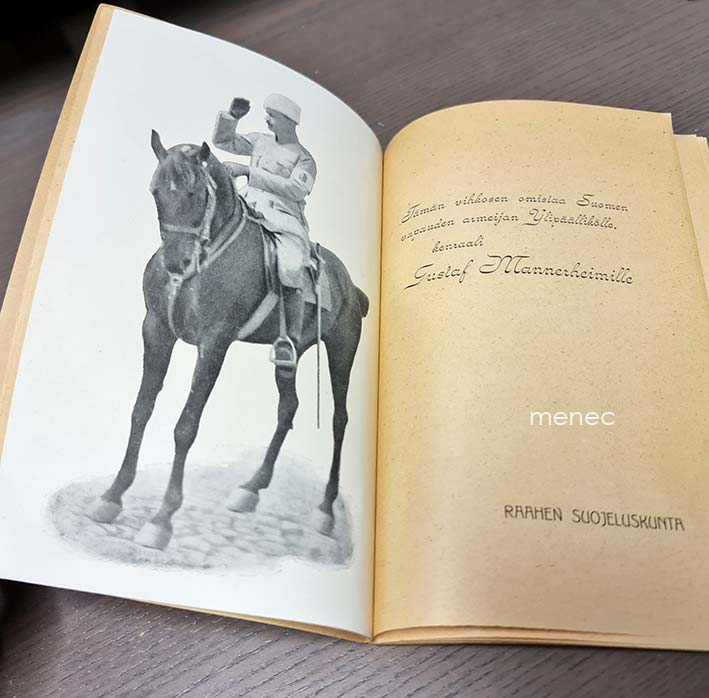 Tämän vihkosen omistaa Suomen
vapauden armeijan Ylipäällikölle,
kenraali
Gustaf Mannerheimille
menec
RAAHEN SUOJELUSKUNTA